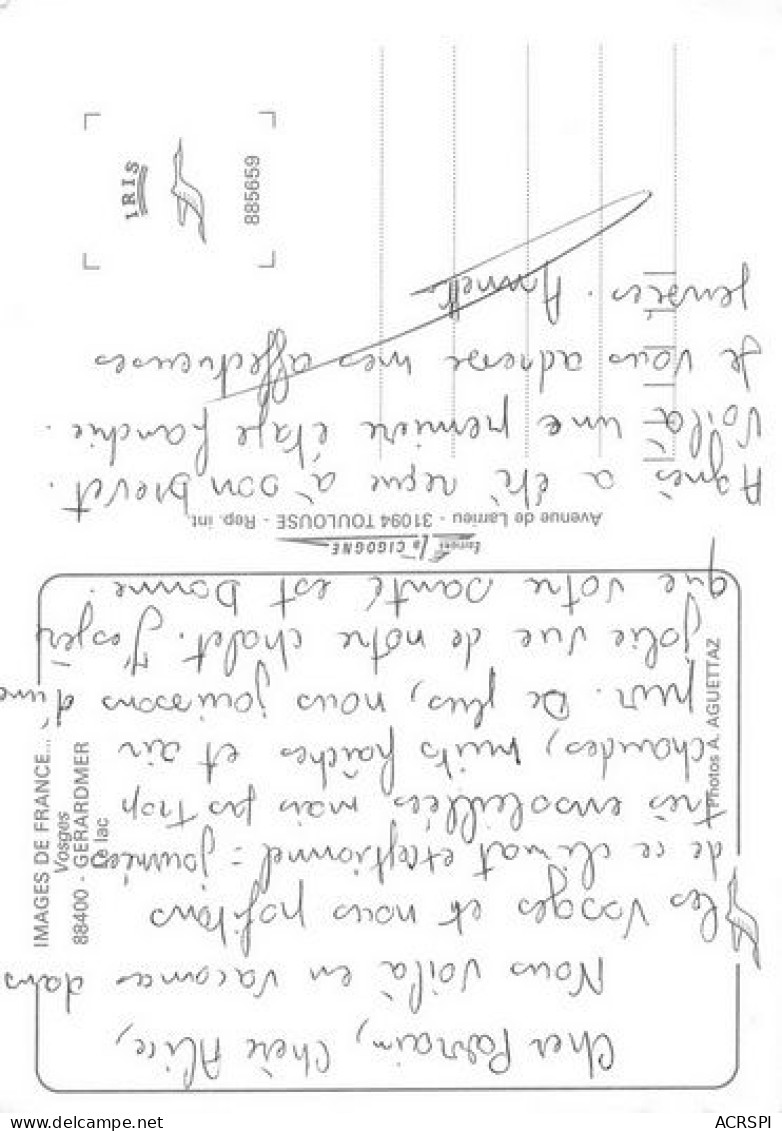 Cher Parrain, Chère Alice,
Nous voilà en vacances dans
les Vosges et nous profitons
de ce climat exceptionnel = journées
très ensoleillées mais pas trop
chaudes, nuits fraîches et air
pur. De plus, nous jouissons d'une
jolie vue de notre chalet. J'espère
que votre santé est bonne.
Agnès a été reçue à son brevet.
Voilà une première étape franchie.
Je vous adresse mes affectueuses
pensées. Annette
IMAGES DE FRANCE...
Vosges
88400 - GERARDMER
Le lac
Photos A. AGUETTAZ
EDITIONS la CIGOGNE
Avenue de Larrieu - 31094 TOULOUSE - Rep. int.
IRIS
885659
delcampe.net
ACRSPI